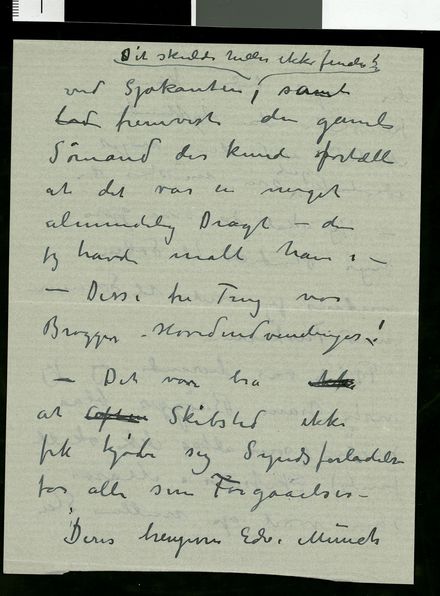 Dit skulde heller ikke findes
ved Sjøkanten; samt
lod fremviste den gamle
Sømand der kunde fortælle
at det var en meget
almindelig Dragt – den
jeg havde malt ham i –
– Disse tre Ting var
Brøgger Hovedindvendinger!
– Det var bra
at Skibsted ikke
fik kjøbe sig Syndsforladelse
for alle sine Forgaaelser –
Deres hengivne Edv. Munch